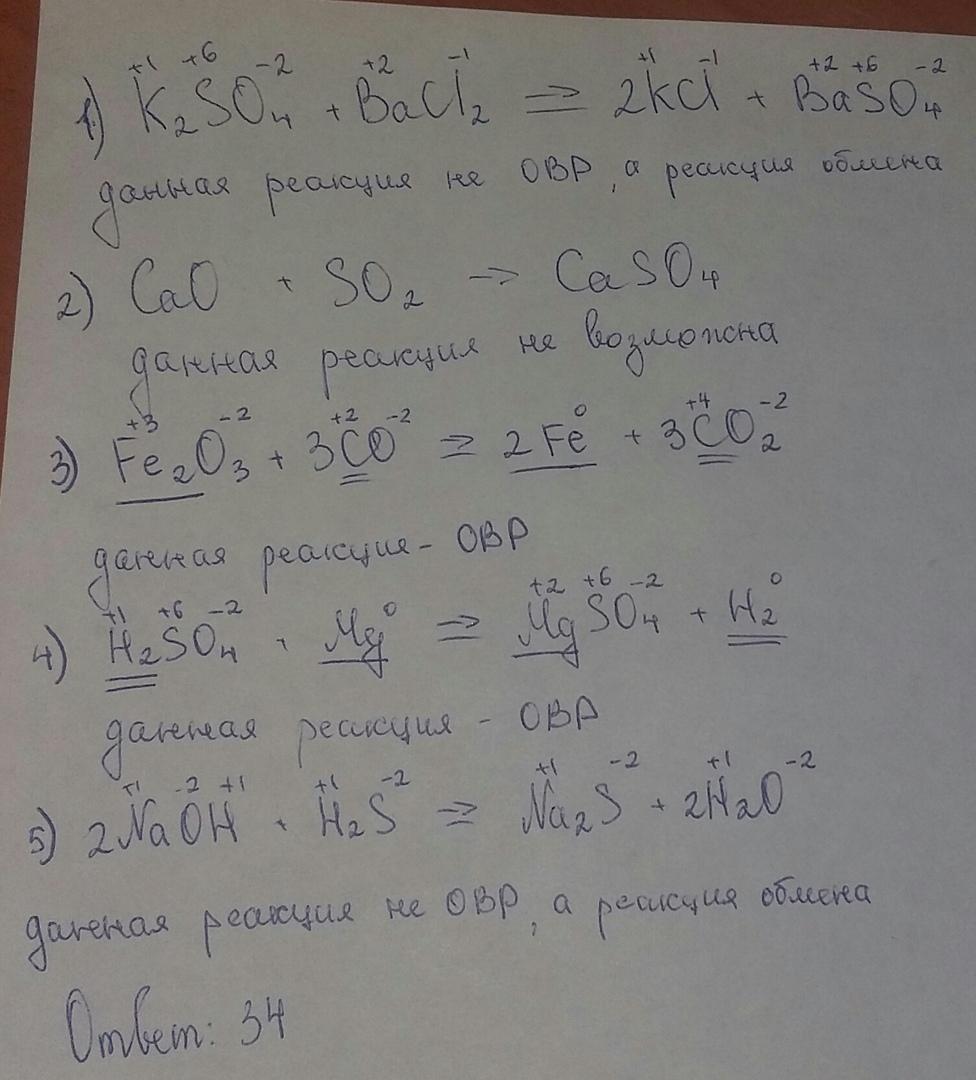 1) K₂⁺¹S⁺⁶O₄⁻² + Ba⁺²Cl₂⁻¹ = 2K⁺¹Cl⁻¹ + Ba⁺²S⁺⁶O₄⁻²
данная реакция не ОВР, а реакция обмена
2) CaO + SO₂ → CaSO₄
данная реакция не возможна
3) Fe₂⁺³O₃⁻² + 3C⁺²O⁻² = 2Fe⁰ + 3C⁺⁴O₂⁻²
данная реакция - ОВР
4) H₂⁺¹S⁺⁶O₄⁻² + Mg⁰ = Mg⁺²S⁺⁶O₄⁻² + H₂⁰
данная реакция - ОВР
5) 2Na⁺¹O⁻²H⁺¹ + H₂⁺¹S⁻² = Na₂⁺¹S⁻² + 2H₂⁺¹O⁻²
данная реакция не ОВР, а реакция обмена
Ответ: 34